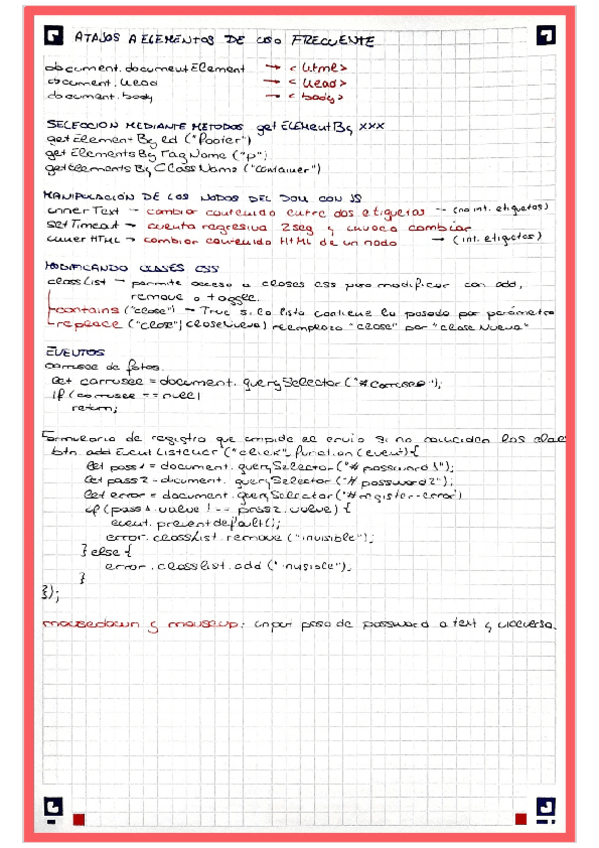 ATAJOS A ELEMENTOS DE USO FRECUENTE
document.documentElement → <html>
document.head → <head>
document.body → <body>
SELECCION MEDIANTE METODOS getElementBy XXX
getElementById ("footer")
getElementsByTagName ("p")
getElementsByClassName ("container")
MANIPULACIÓN DE LOS NODOS DEL DOM CON JS
innerText → cambiar contenido entre dos etiquetas → (no int. etiquetas)
setTimeout → cuenta regresiva 2seg y invoca cambiar
innerHTML → cambiar contenido HTML de un nodo → (int. etiquetas)
MODIFICANDO CLASES CSS
classList → permite acceso a clases css para modificar con add,
remove o toggle.
contains ("clase") → True si la lista contiene lo pasado por parámetro
replace ("clase", claseNueva) reemplaza "clase" por "claseNueva"
EVENTOS
carrusel de fotos.
let carrusel = document.querySelector("#carrusel");
if (carrusel == null)
return;
Formulario de registro que impide el envio si no coinciden las clav
btn.addEventListener("click", function (event) {
let pass1 = document.querySelector("#password1");
let pass2 = document.querySelector("#password2");
let error = document.querySelector("#register-error")
if (pass1.value !== pass2.value) {
event.preventdefault();
error.classList.remove ("invisible");
} else {
error.classlist.add ("invisible");
}
});
mousedown y mouseup: input pasa de password a text y viceversa.